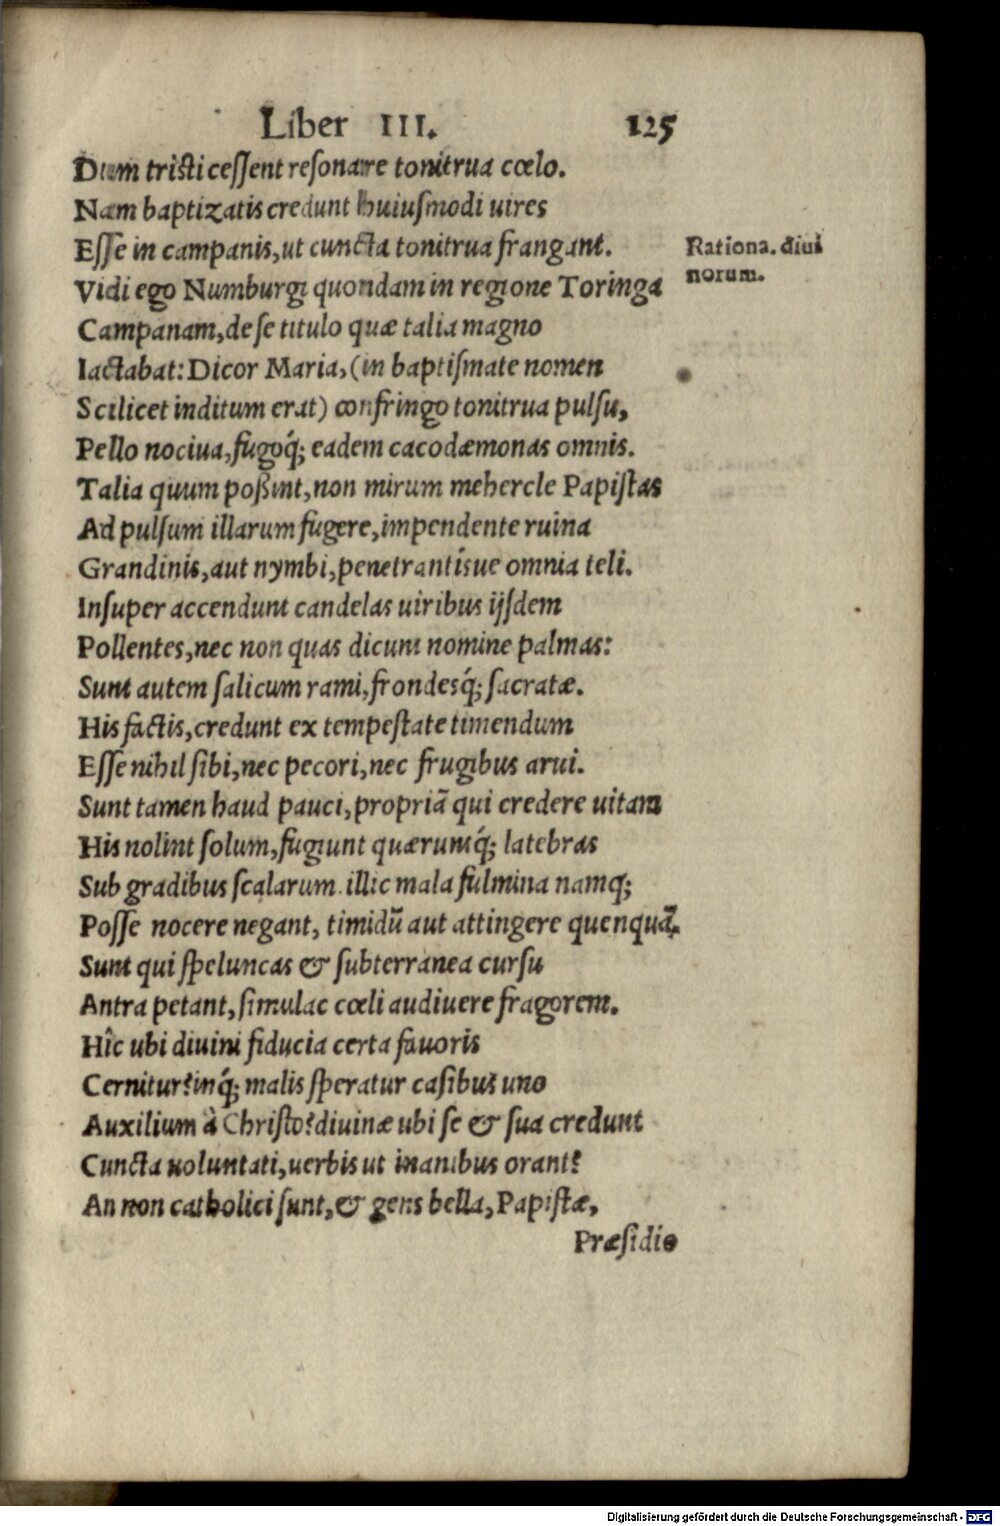 Liber III. 125
Dum tristi cessent resonare tonitrua cœlo.
Nam baptizatis credunt huiusmodi uires
Esse in campanis, ut cuncta tonitrua frangant.
Rationa. diui
norum.
Vidi ego Numburgi quondam in regione Toringa
Campanam, de se titulo quæ talia magno
Iactabat: Dicor Maria, (in baptismate nomen
Scilicet inditum erat) confringo tonitrua pulsu,
Pello nociua, fugoq́; eadem cacodæmonas omnis.
Talia quum poßint, non mirum mehercle Papistas
Ad pulsum illarum fugere, impendente ruina
Grandinis, aut nymbi, penetrantísue omnia teli.
Insuper accendunt candelas uiribus ijsdem
Pollentes, nec non quas dicunt nomine palmas:
Sunt autem salicum rami, frondesq́; sacratæ.
His factis, credunt ex tempestate timendum
Esse nihil sibi, nec pecori, nec frugibus arui.
Sunt tamen haud pauci, propriā qui credere uitam
His nolint solum, fugiunt quæruntq́; latebras
Sub gradibus scalarum. illic mala fulmina namq;
Posse nocere negant, timidū aut attingere quenquā.
Sunt qui speluncas & subterranea cursu
Antra petant, simulac cœli audiuere fragorem.
Hîc ubi diuini fiducia certa fauoris
Cernitur? inq́; malis speratur casibus uno
Auxilium à Christo? diuinæ ubi se & sua credunt
Cuncta uoluntati, uerbis ut inanibus orant?
An non catholici sunt, & gens bella, Papistæ,
Præsidio
Digitalisierung gefördert durch die Deutsche Forschungsgemeinschaft - DFG